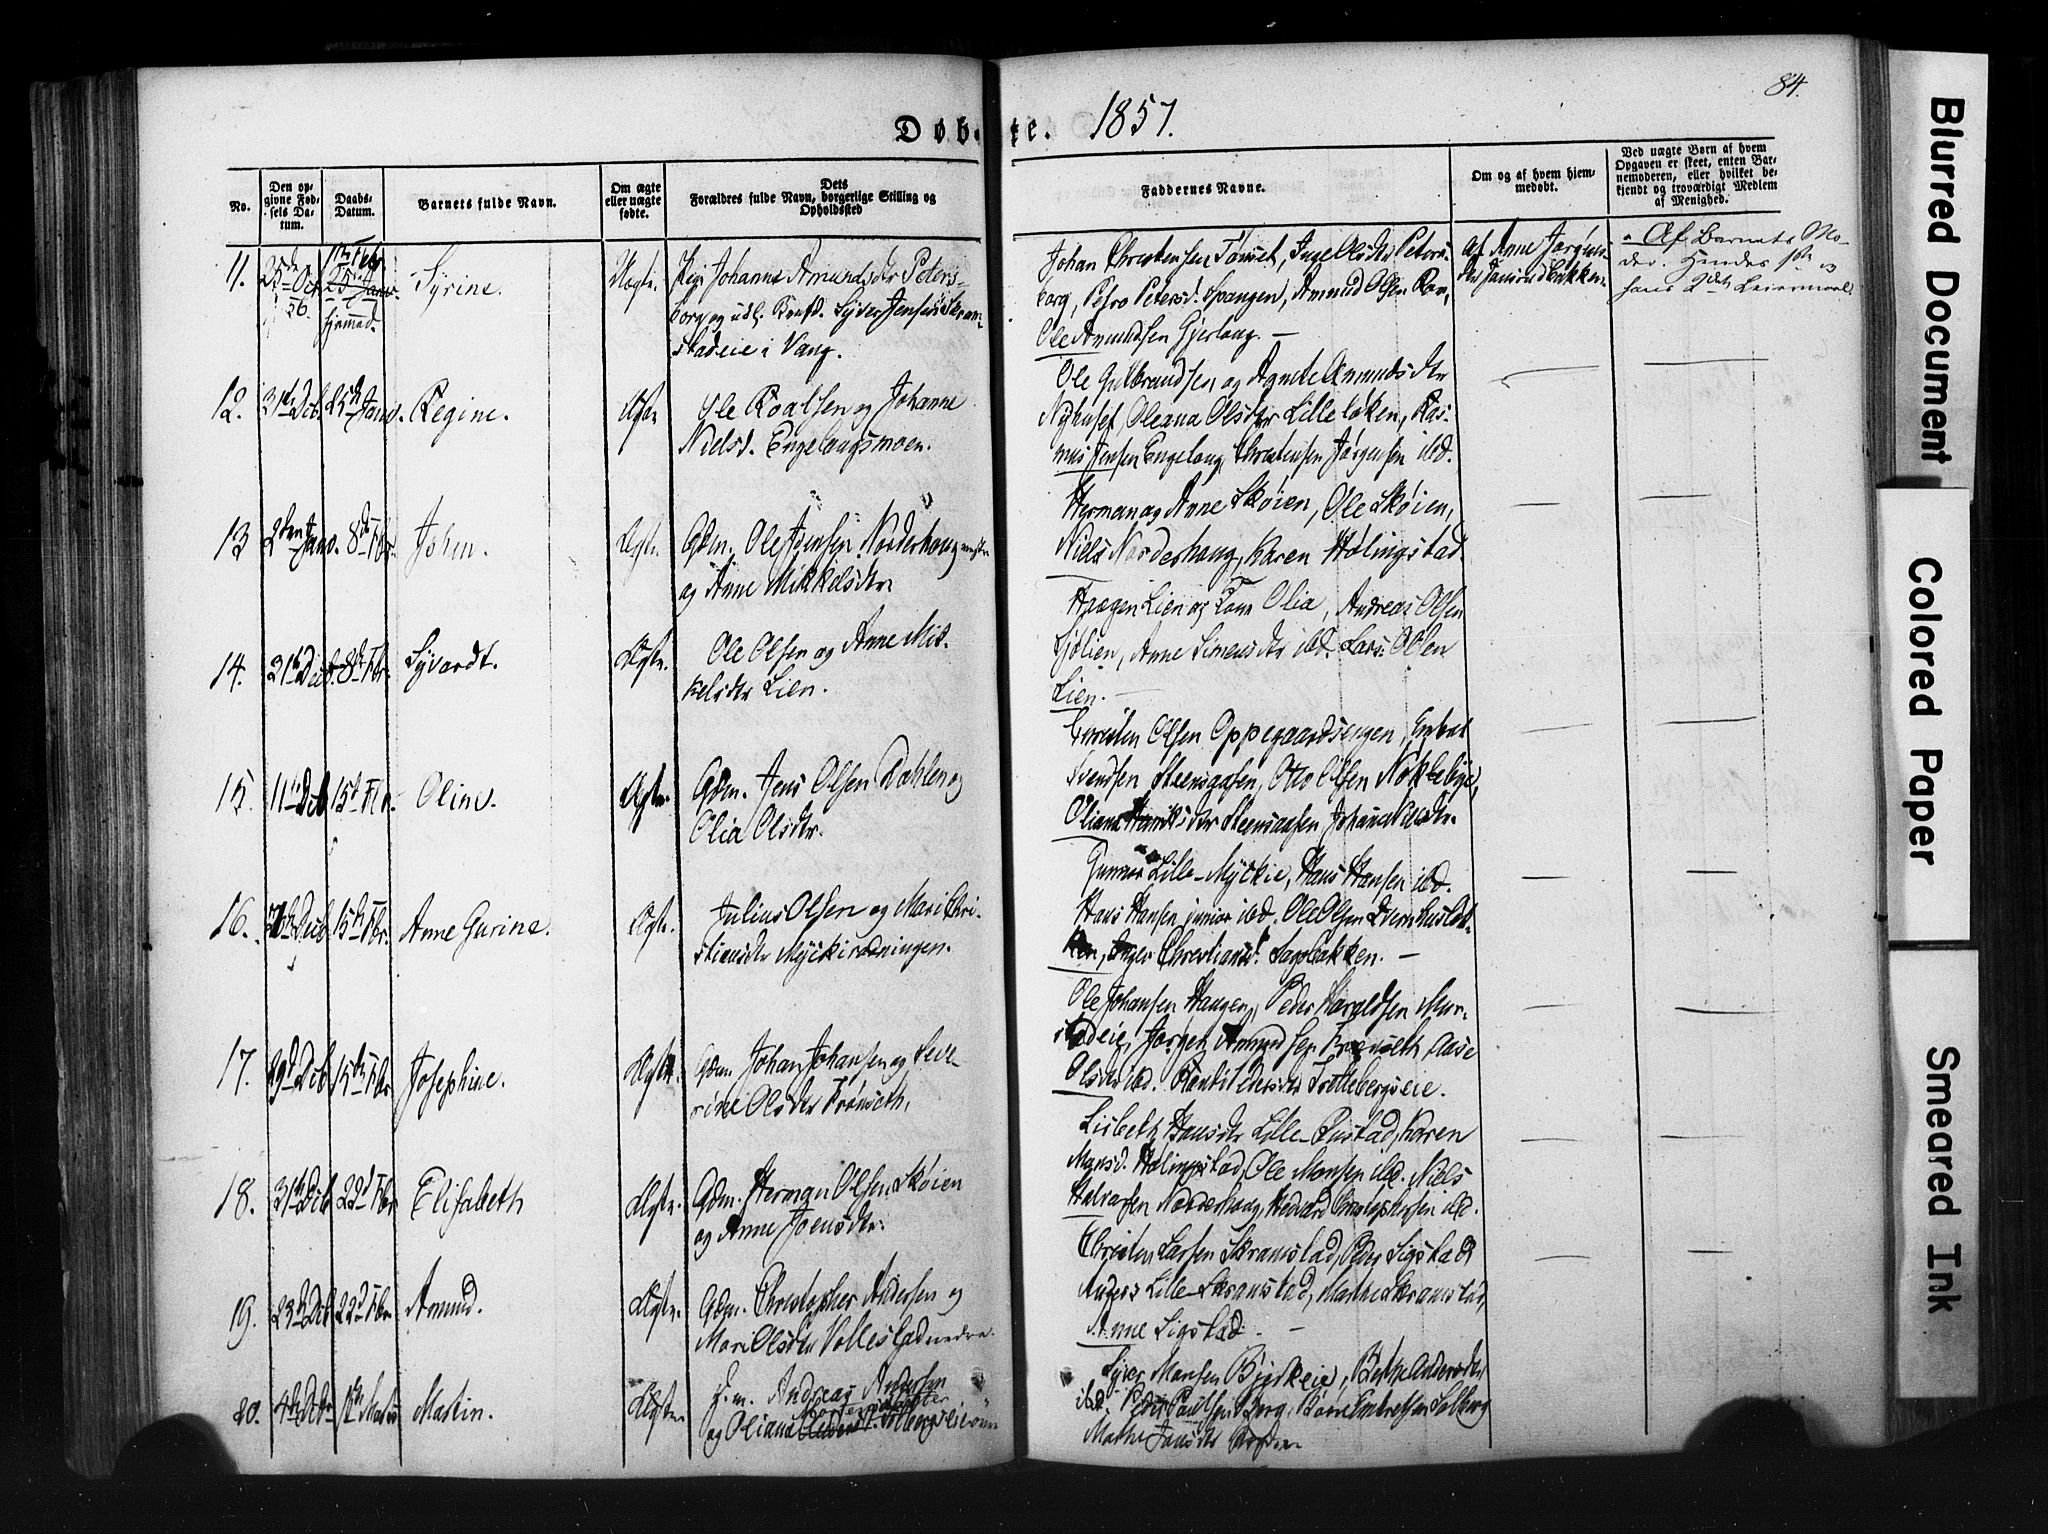 84.
Døbte. 1857.
No.
Den op-
givne Fød-
sels Da-
tum.
Daabs-
Datum.
Barnets fulde Navn.
Om ægte
eller uægte
fødte.
Dets
Forældres fulde Navn, borgerlige Stilling og
Opholdssted
Faddernes Navne.
Om og af hvem hjem-
medøbt.
Ved uægte Børn af hvem
Opgaven er skeet, enten Bar-
nemoderen, eller hvilket be-
kjendt og troværdigt Medlem
af Menighed.
11.
25de Oct.
56.
hjemmed.
Syrine.
Uægte.
Pige Johanne Amundsdtr Peters-
borg og Syver Jensen Skram-
stadeie i Vang.
Johan Christensen Tømset, Inge Olsdtr Peters-
borg, Petro Petersd. Spangen, Amund Olsen
Ole Amundsen Gjerlaug. —
Af Anne Jørgens-
Af Barnets Mo-
der. Hendes 1ste og
hans 2det Leiermaal.
12.
31te Dcb.
25de Janv.
Regine.
Ægte
Ole Roalsen og Johanne
Nielsd. Engelaugsmoen.
Ole Gulbrandsen og Agnete Amundsdtr
Nyhuset, Oleana Olsdtr Lilleløken, Ras-
mus Jensen Engelaug, Christensen Jørgensen ibd.
13
2den Janv.
8de Fbr.
Johan.
Ægte.
Gdm. Ole Jensen Norderhoug
og Anne Mikkelsdtr
Herman og Anne Skøien, Ole Skøien,
Niels Norderhaug, Karen Hølingstad.
14.
31te Dcb.
8de Fbr.
Syvardt.
Ægte.
Ole Olsen og Anne Mik-
kelsdtr Lien.
Haagen Lien og Kone Olia, Andreas Olsen
Sjølien, Anne Simensdtr ibd. Lars Olsen
Lien. —
15.
11te Dcb
15de Fbr.
Oline.
Ægte.
Gdm. Jens Olsen Dahlen og
Olia Olsdtr.
Christen Olsen Oppegaardsengen,
Svendsen Steensaasen, Otto Olsen Nøkleby,
Oliana Steensaasen, Johana
16.
Dcb.
15de Fbr.
Anne Gurine.
Ægte.
Julius Olsen og Mari Chri-
stiansdtr Myckirødningen.
Gunnar Lille-Myckie, Hans Hansen ibd.
Hans Hansen junior ibd. Ole Olsen Kvernhusbak-
ken, Inger Christiansd. Sagbakken. —
17.
29de Dcb
15de Fbr
Josephine.
Ægte.
Gdm. Johan Johansen og Seve-
rine Olsdtr Frønseth.
Ole Johansen Haugen, Peder Haraldsen Mur-
stadeie, Jørgen Amundsen Frønseth, Aase
Olsdtr ibd. Randi Pedersdtr Frettebergseie.
18.
31te Dcb
22de Fbr
Elisabeth
Ægte.
Gdm. Herman Olsen Skøien
og Anne Joensdtr.
Lisbeth Hansdtr Lille-Rustad, Karen
Mansd. Hølingstad, Ole Monsen ibd. Niels
Halvorsen Norderhaug, Hedvard Christophersen ibd.
19.
23de Dcb
22de Fbr
Amund.
Ægte.
Gdm. Christopher Andersen og
Mari Olsdtr Vollestad nedre.
Christen Larsen Skramstad, Peder Sigstad
Anders Lille-Skramstad, Marthe Skramstad,
Anne Sigstad. —
20.
4de Dcb
Martin.
Ægte.
H.m. Andreas Andersen
og Oliana
Syver Monsen Bjerkeie, Berthe Andersdtr
ibd. Peder Paulsen Berg, Embretsen Solberg
Marthe Jansdtr
Blurred Document
Colored Paper
Smeared Ink